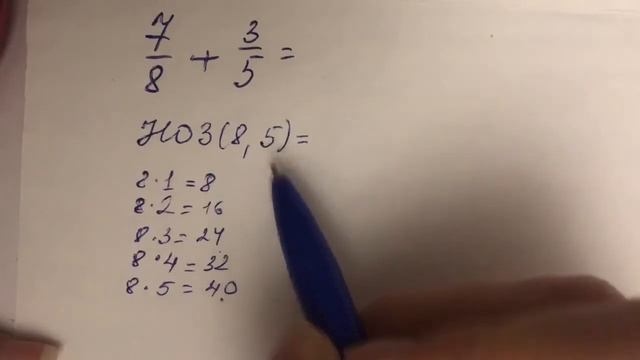 7/8 + 3/5 =
НОЗ(8, 5) =
8·1=8
8·2=16
8·3=24
8·4=32
8·5=40